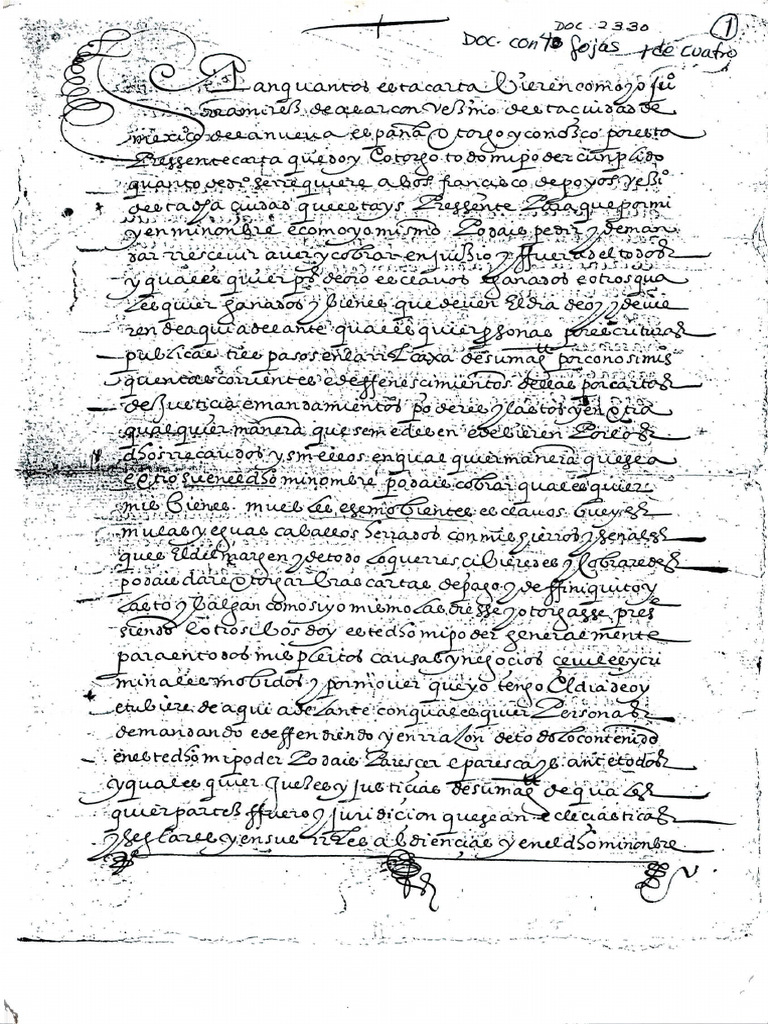 DOC. 2330
1
DOC. con 40 fojas + de cuatro
Sepan quantos esta carta vieren como yo
Ramirez de alarcon vezino desta ciudad de
mexico de la nueva españa otorgo y conosco por esta
pressente carta que doy e otorgo todo mi poder cunplido
quanto de dro se rrequiere a bos francisco de poyos vezº
desta dha ciudad questays pressente para que por mi
y en mi nombre e como yo mismo podais pedir y deman
dar rrescevir aver y cobrar en juizio y ffuera del todos
y qualesquier pºs de oro esclavos ganados e otros qua
lesquier ganados y bienes que deven el dia de oy y devie
ren de aqui adelante qualesquier psonas por escrituras
publicas en la rreal caxa de su magd por conosimiºs
quentas corrientes e de ffenescimientos dellas por cartas
de justicia e mandamientos poderes y lastos y en otra
qualquier manera que se me deben e debieren por los
dhos rrecaudos y sin ellos en qualquier manera que sea
e otrosi en el dho mi nombre podais cobrar qualesquier
mis bienes muebles e semobientes esclavos bueyes
mulas yeguas caballos herrados con mis hierros y señales
quel del margen y de todo lo que rrescibieredes y cobraredes
podais dar e otorgar bras cartas de pago y de ffiniquito y
lasto y balgan como si yo mismo las diesse y otorgasse pres
siendo e otrosi bos doy este dho mi poder generalmente
para en todos mis pleitos causas y negocios ceviles y cri
minales mobidos y por mover que yo tengo el dia de oy
e tubiere de aqui adelante con qualesquier personas
demandando e deffendiendo y en rrazon de todo lo contenido
en este dho mi poder podais parescer e parescais ante todos
y qualesquier juezes y justicias de su magd de quales
quier partes ffuero y juridicion que sean eclesiasticas
y seglares y en sus rreales abdiencias y en el dho mi nombre